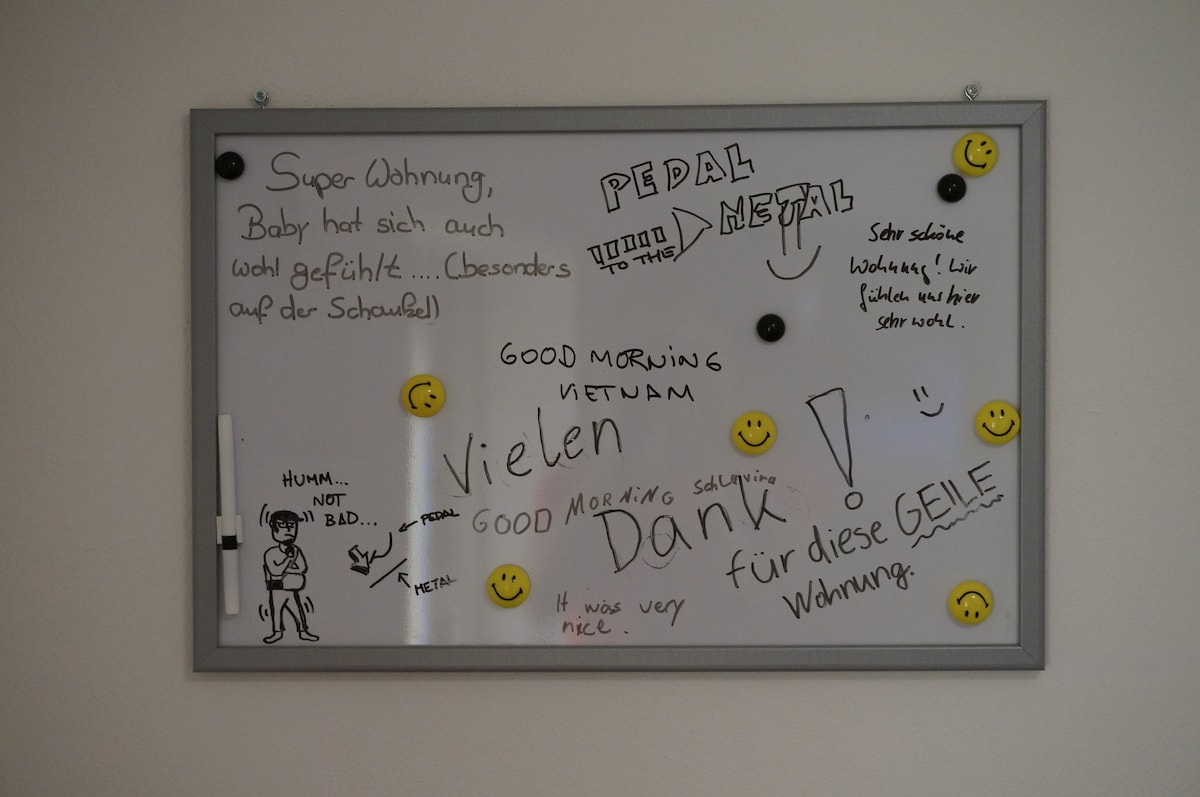 Super Wohnung,
Baby hat sich auch
wohl gefühlt .... (besonders
auf der Schaukel)
PEDAL
TO THE
METAL
Sehr schöne
Wohnung! Wir
fühlen uns hier
sehr wohl.
GOOD MORNING
VIETNAM
Vielen
Dank !
für diese GEILE
Wohnung.
GOOD MORNING
It was very
nice.
HUMM...
NOT
BAD...
PEDAL
METAL